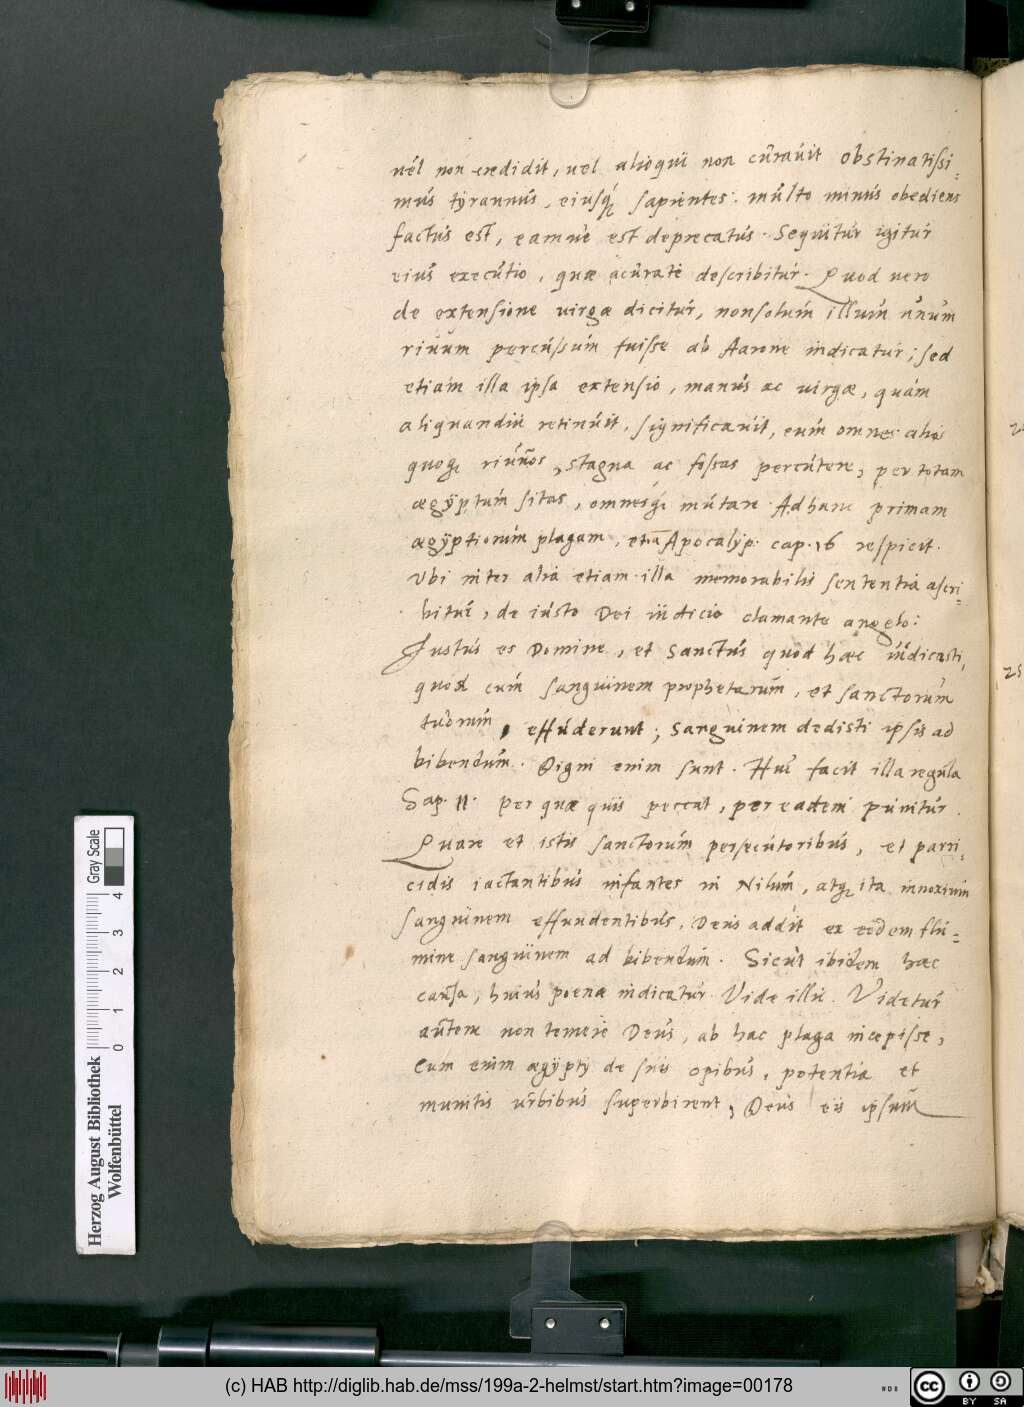 vel non credidit, vel alioqui non curavit obstinatissi-
mus tyrannus, eiusq́ sapientes: multo minus obediens
factus est, eamve est deprecatus. Sequitur igitur
eius executio, quæ acurate describitur. Quod vero
de extensione virgæ dicitur, non solum illum unum
rivum percussum fuisse ab Aarone indicatur; sed
etiam illa ipsa extensio, manus ac virgæ, quam
aliquandiu retinuit, significavit, eum omnes alios
quoq, rivos, stagna ac fossas percutere, per totam
ægÿptum sitas, omnesq́ mutare. Ad hanc primam
ægÿptiorum plagam, etiā Apocalyp. cap. 16 respicit.
Ubi inter alia etiam illa memorabilis sententia ascri-
bitur, de iusto Dei iudicio clamante angelo:
Justus es Domine, et Sanctus quod hæc iudicasti,
quod cum sanguinem prophetarum, et sanctorum
tuorum, effuderunt; Sanguinem dedisti ipsis ad
bibendum. Digni enim sunt. Huc facit illa regula
Sap. 11. Per quæ quis peccat, per eadem punitur.
Quare et istis sanctorum persecutoribus, et parri-
cidis iactantibus infantes in Nilum, atq, ita innoxium
sanguinem effundentibus, Deus addit ex eodem flu-
mine sanguinem ad bibendum. Sicut ibidem hæc
causa, huius poenæ indicatur. Vide illic. Videtur
autem non temere Deus, ab hac plaga incepisse,
Cum enim ægÿptij de suis opibus, potentia et
munitis urbibus superbirent, Deus eis ipsum
Herzog August Bibliothek
Wolfenbüttel
0 1 2 3 4
Gray Scale
(c) HAB http://diglib.hab.de/mss/199a-2-helmst/start.htm?image=00178
cc BY SA